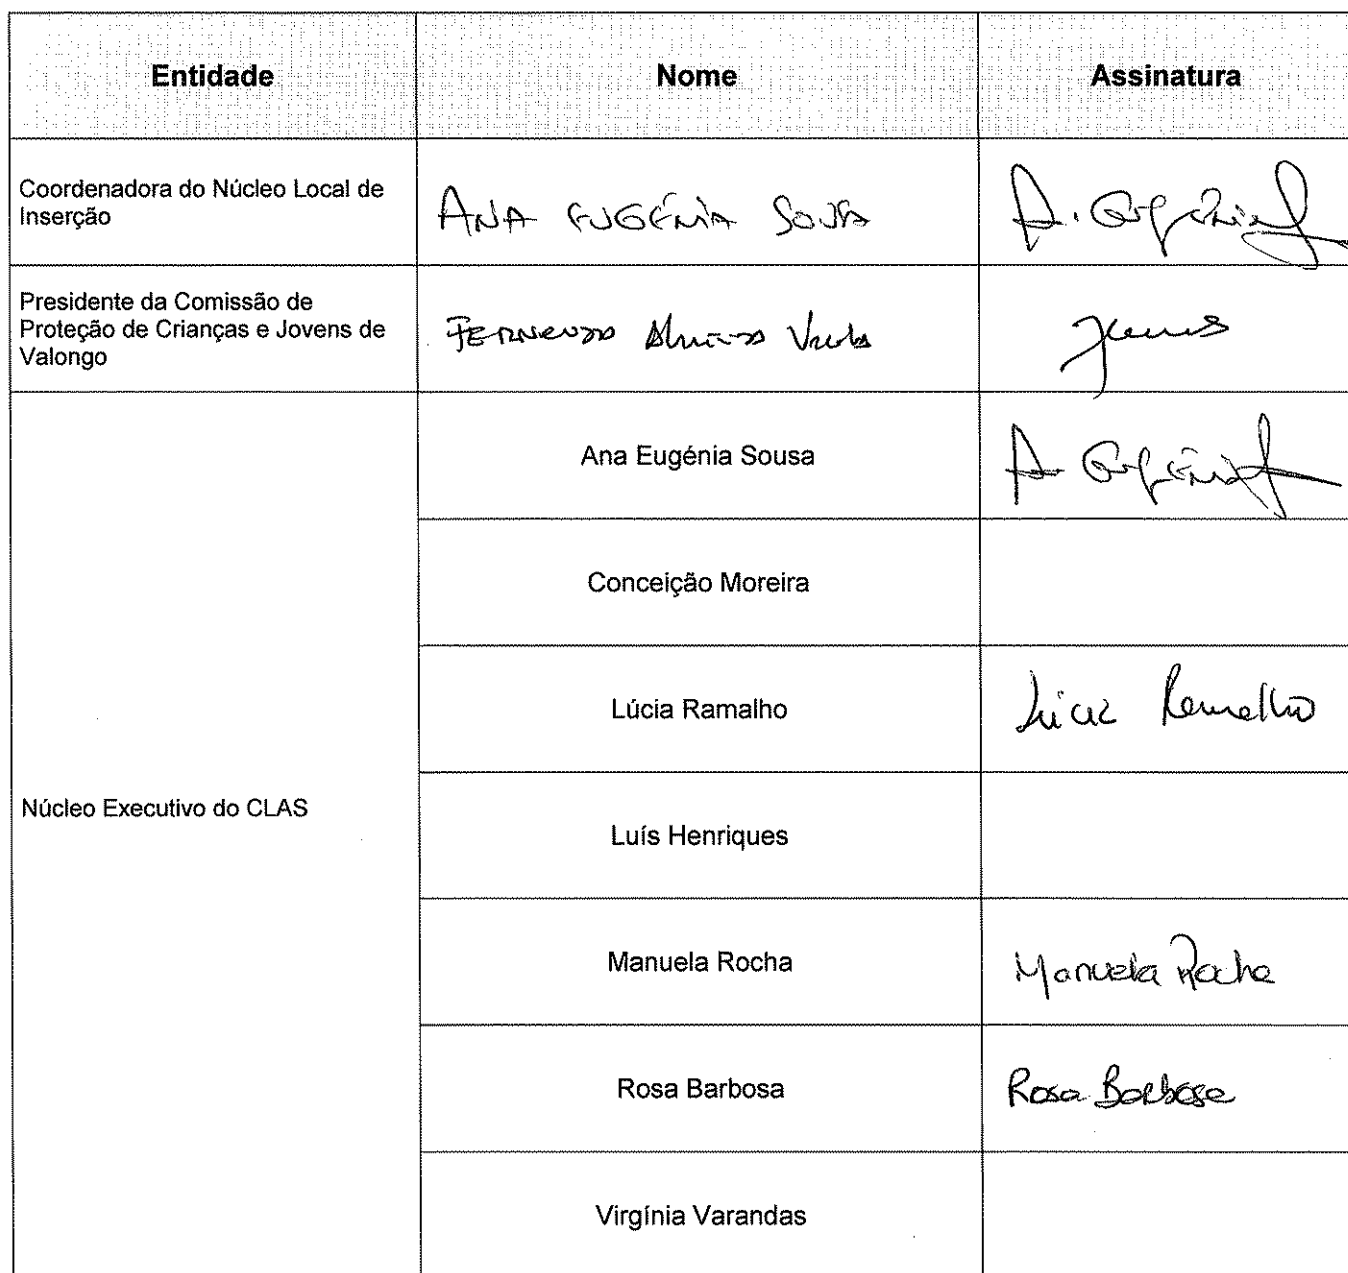 Entidade Nome Assinatura
Coordenadora do Núcleo Local de
Inserção
ANA EUGÉNIA SOUSA
A. Eugénia
Presidente da Comissão de
Proteção de Crianças e Jovens de
Valongo
Núcleo Executivo do CLAS
Ana Eugénia Sousa
A. Eugénia
Conceição Moreira
Lúcia Ramalho
Lúcia Ramalho
Luís Henriques
Manuela Rocha
Manuela Rocha
Rosa Barbosa
Rosa Barbosa
Virgínia Varandas